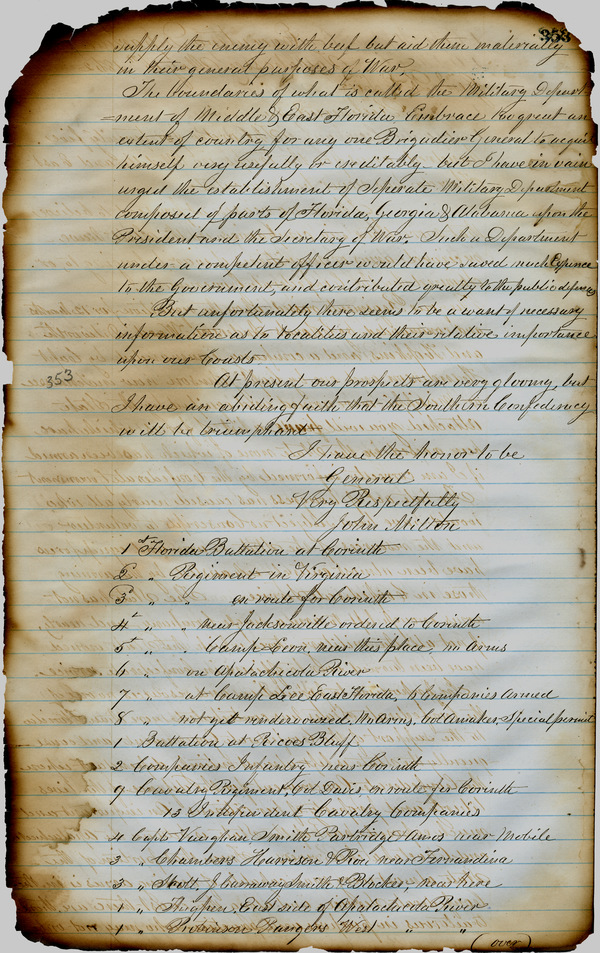 353
supply the enemy with beef but aid them materially
in their general purposes of War.
The boundaries of what is called the Military Depart-
=ment of Middle & East Florida "Embrace too great an
extent of country for any one Brigadier General to acquit
himself very usefully or creditably but I have in vain
urged the establishment of Seperate Military Department
composed of parts of Florida, Georgia & Alabama upon the
President and the Secretary of War. Such a Department
under a competent officer would have saved much Expence
to the Government, and contributed greatly to the public defences
But unfortunately there seems to be a want of necessary
information as to localities and their relative importance
upon our Coasts
353
At present our prospects are very gloomy, but
I have an abiding faith that the Southern Confederacy
will be triumphant
I have the honor to be
General
Very Respectfully
John Milton
1st Florida Battalion at Corinth
2d " Regiment in Virginia
3d " " en route for Corinth
4th " " near Jacksonville ordered to Corinth
5th " " Camp Leon, near this place, no Arms
6 " on Apalachicola River
7 " at Camp Lee East Florida, 6 Companies Armed
8 " not yet rendezvoused. No Arms. Col Amaker, Special permit
1 Battalion at Ricoes Bluff
2 Companies Infantry near Corinth
9 Cavalry Regiment, Col Davis en route for Corinth
13 Independent Cavalry Companies
4 Capts Vaughan, Smith Partridge & Amos near Mobile
3 " Chambers Harrison & Row near Fernandina
3 " Scott, J Carraway Smith & Blocker, near here
1 " Thigpen, East side of Apalachicola River
1 " Robinson Rangers West " "
(over)